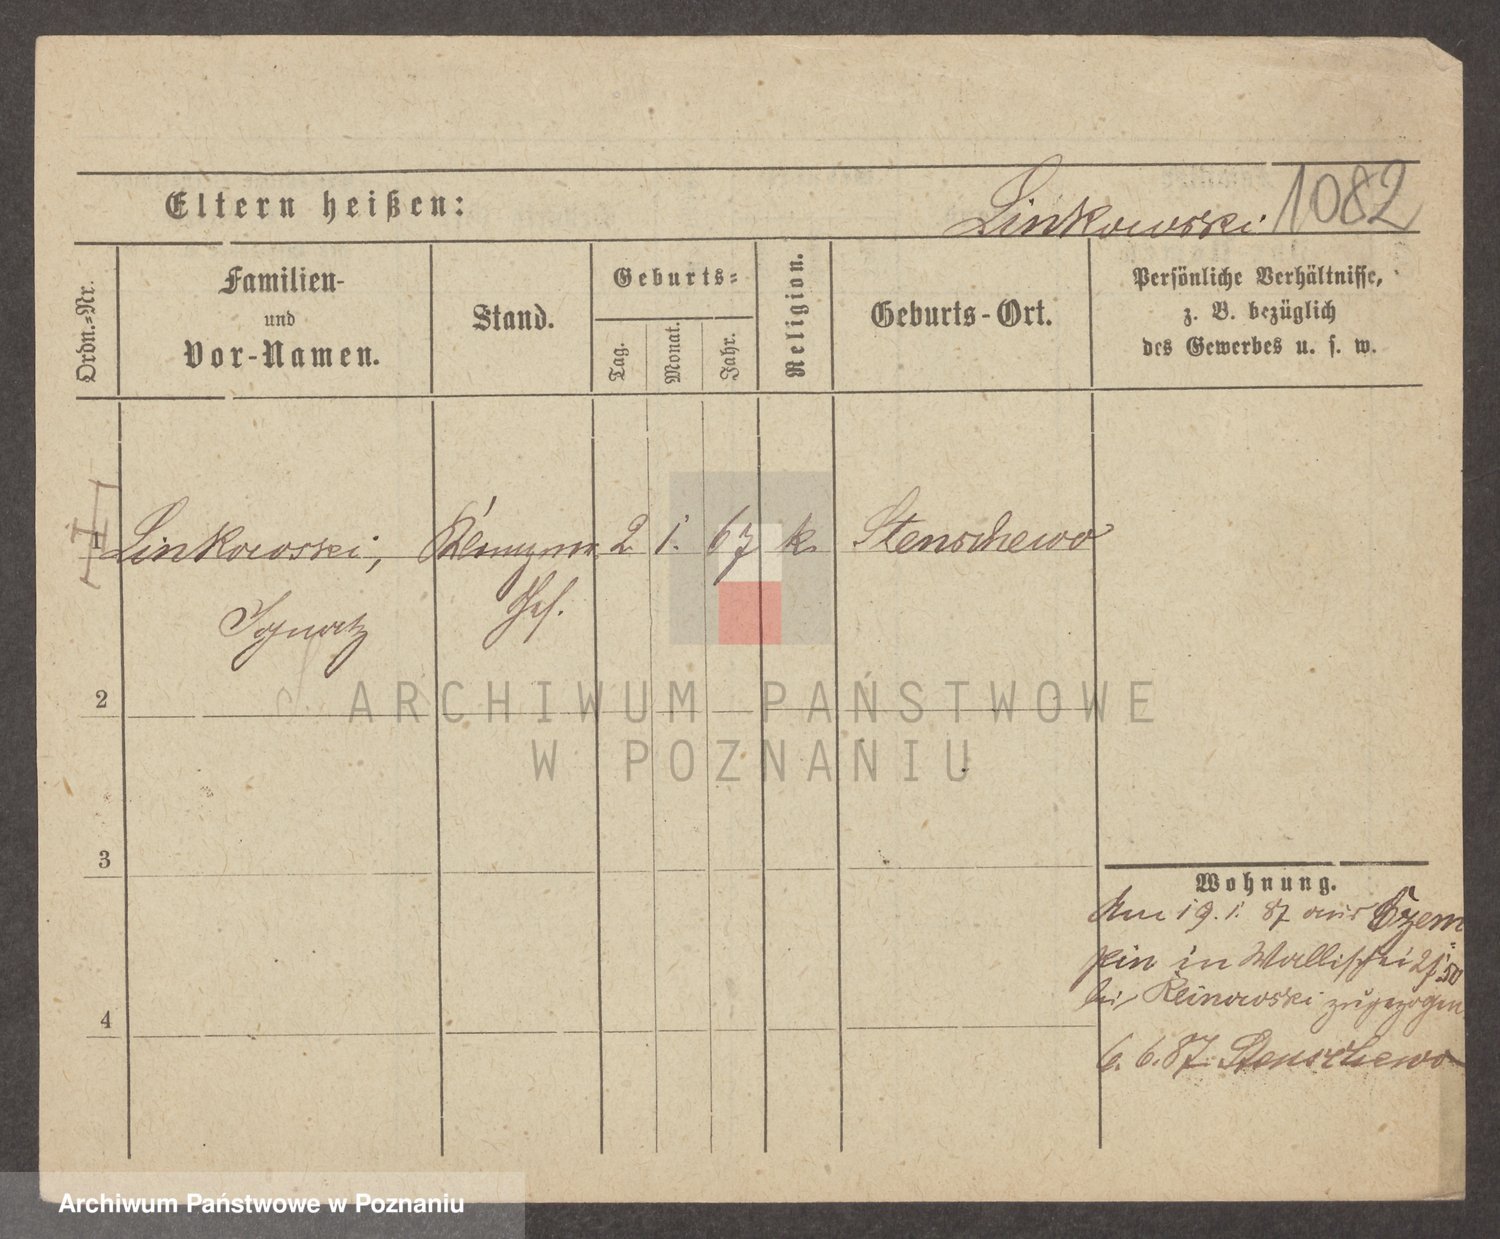 Eltern heißen:
Linkowski 1082
Ordn.=Nr.
Familien-
und
Vor-Namen.
Stand.
Geburts=
Tag.
Monat.
Jahr.
Religion.
Geburts-Ort.
Persönliche Verhältnisse,
z. B. bezüglich
des Gewerbes u. s. w.
1 Linkowski, 2 1. 67 k. Stenschewo
Ignatz Ges.
2
3
4
Wohnung.
Am 19. 1. 87 aus Czem
pin in Wallischei
bei zugezogen
6. 6. 87 Stenschewo
ARCHIWUM PAŃSTWOWE
W POZNANIU
Archiwum Państwowe w Poznaniu